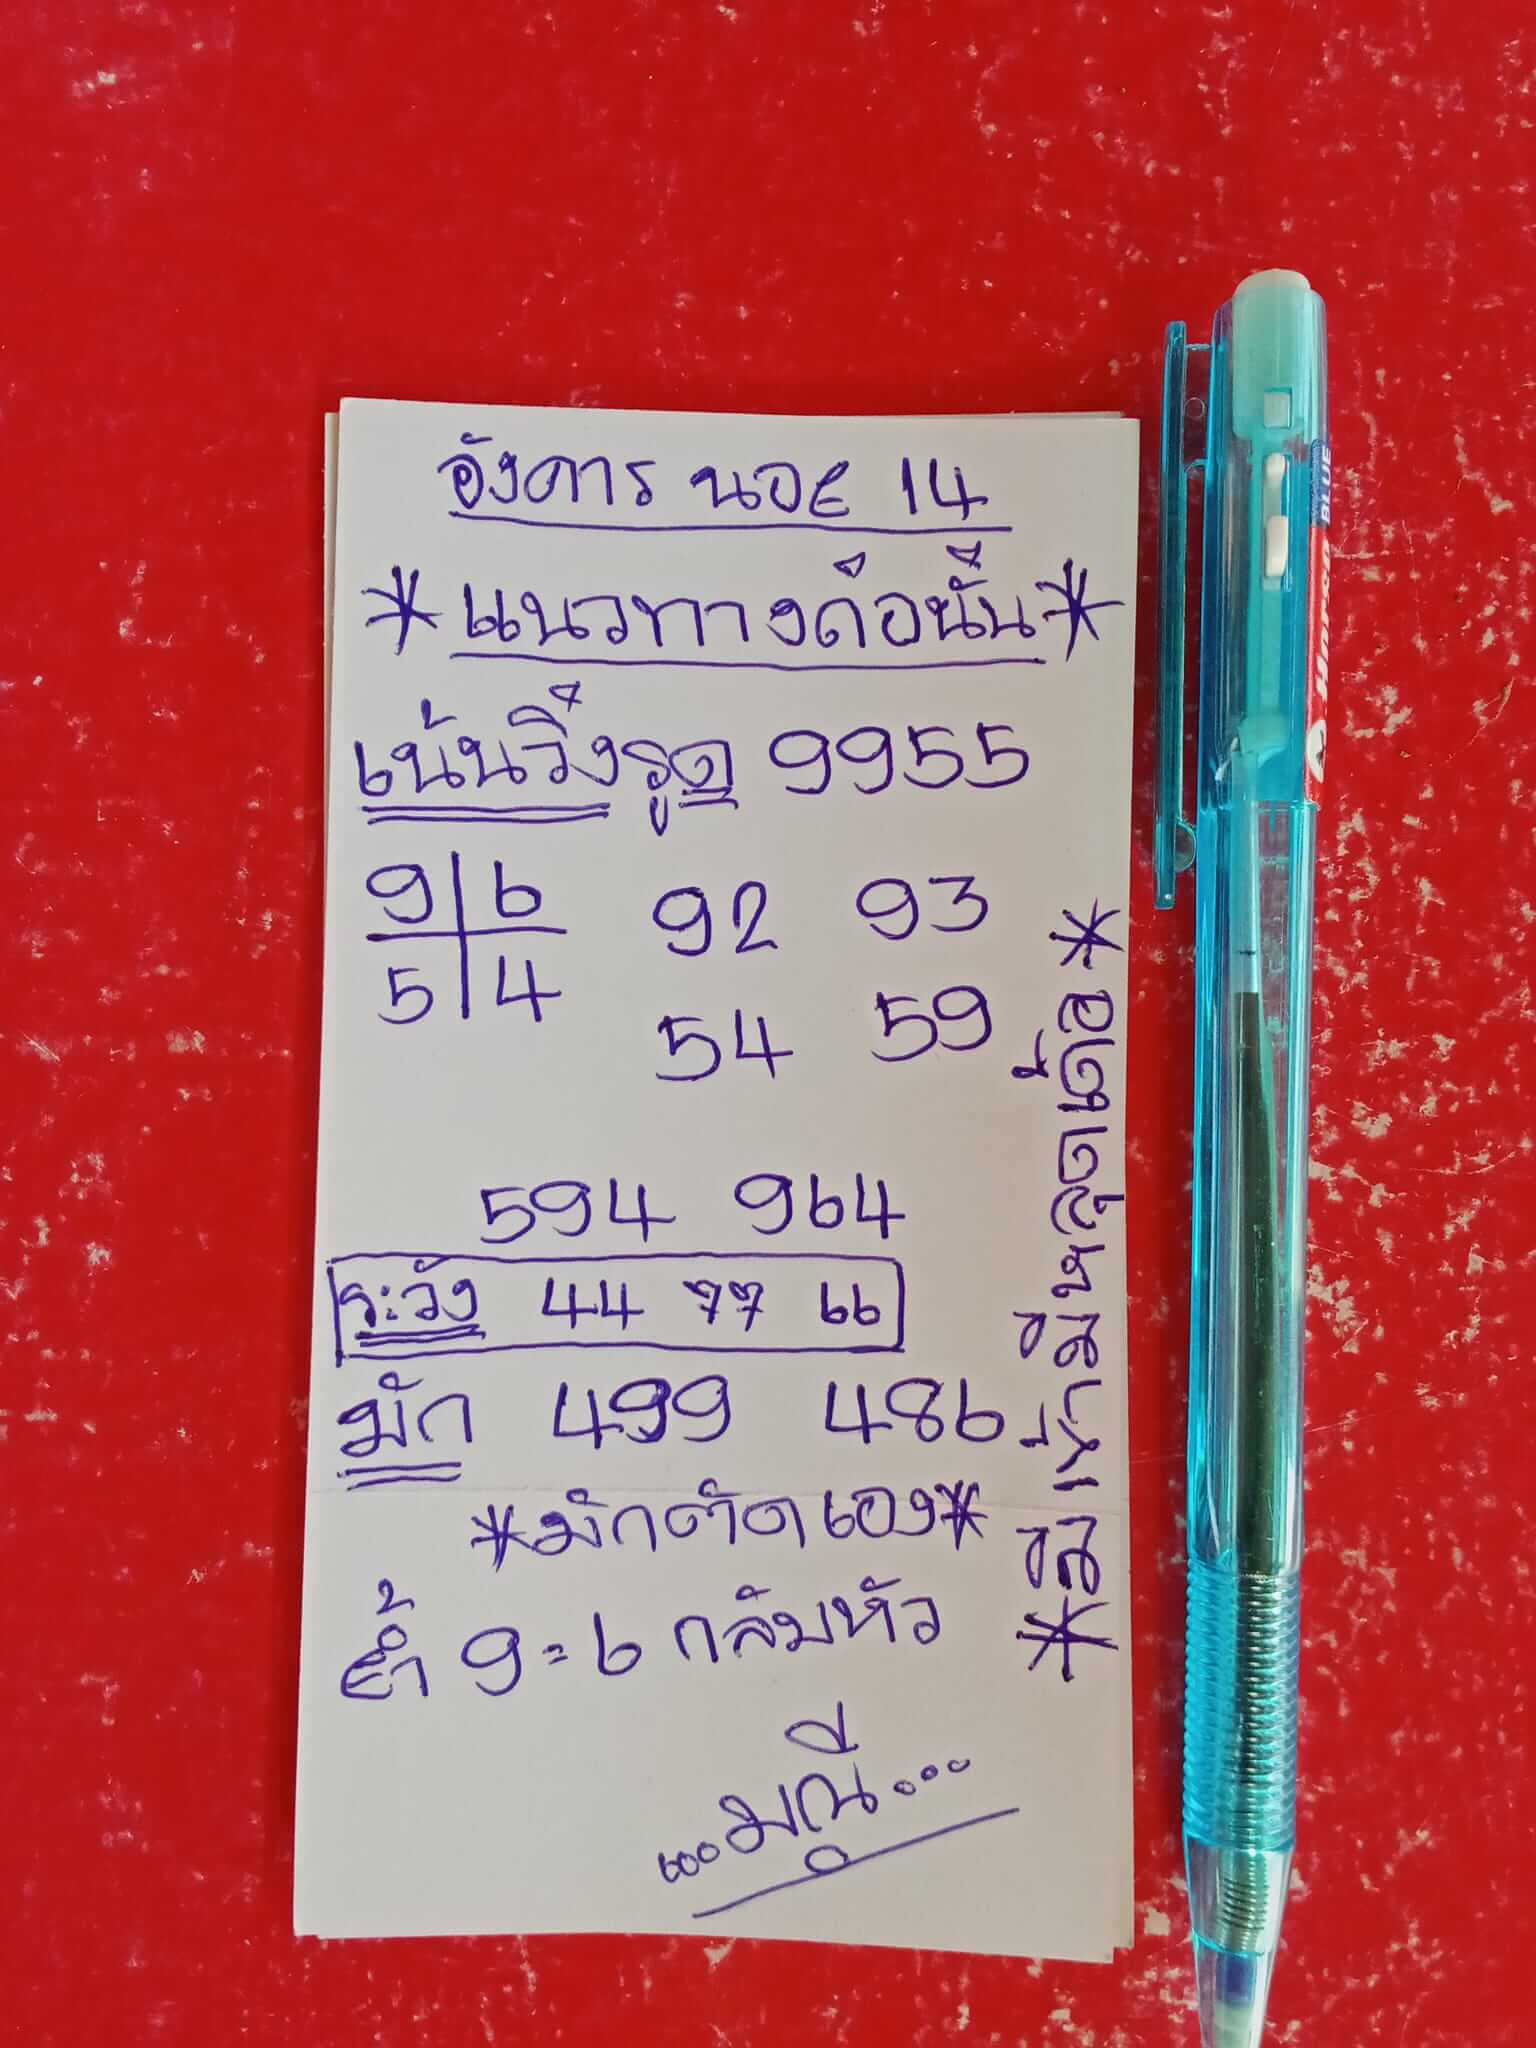 อังคาร นอย 14
*แนวทางด๋อนั้น*
เน้นวิ่งรูด 9955
9 6
5 4
92 93
54 59
594 964
ระวัง 44 77 66
มัก 499 486
*มักตัดเอง*
ย้ำ 9=6 กลับหัว
...มณี...
หลุดเด้อ*
BLUE
Horse